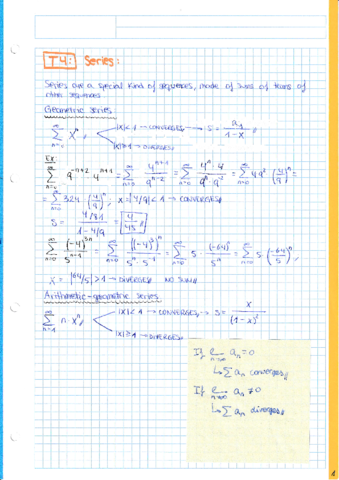 T4: Series:
Series are a special kind of sequences, made of sums of terms of
other sequences.
Geometric series:
∞ Σ n=0 xⁿ, |x| < 1 → CONVERGES → S = a₁ / (1-x) //
|x| ≥ 1 → DIVERGES
Ex:
Σ 9^(-n+2) 4^(n+1) = ∞ Σ n=0 4^(n+1) / 9^(n-2) = ∞ Σ n=0 4ⁿ · 4 / 9ⁿ 9⁻² = ∞ Σ n=0 4 · 9² (4/9)ⁿ =
= ∞ Σ n=0 324 · (4/9)ⁿ ; x = |4/9| < 1 → CONVERGES//
S = (4/81) / (1 - 4/9) = 4/45 //
∞ Σ (-4)^(3n) / 5^(n-1) = ∞ Σ n=0 ((-4)³)ⁿ / 5ⁿ · 5⁻¹ = ∞ Σ n=0 5 · (-64)ⁿ / 5ⁿ = ∞ Σ n=0 5 · (-64/5)ⁿ,
x = |64/5| > 1 → DIVERGES NO SUM//
Arithmetic-geometric series
∞ Σ n=1 n · xⁿ, |x| < 1 → CONVERGES, → S = x / (1-x)² //
|x| ≥ 1 → DIVERGES
If lim n→∞ aₙ = 0
↳ Σ aₙ converges//
If lim n→∞ aₙ ≠ 0
↳ Σ aₙ diverges//
1